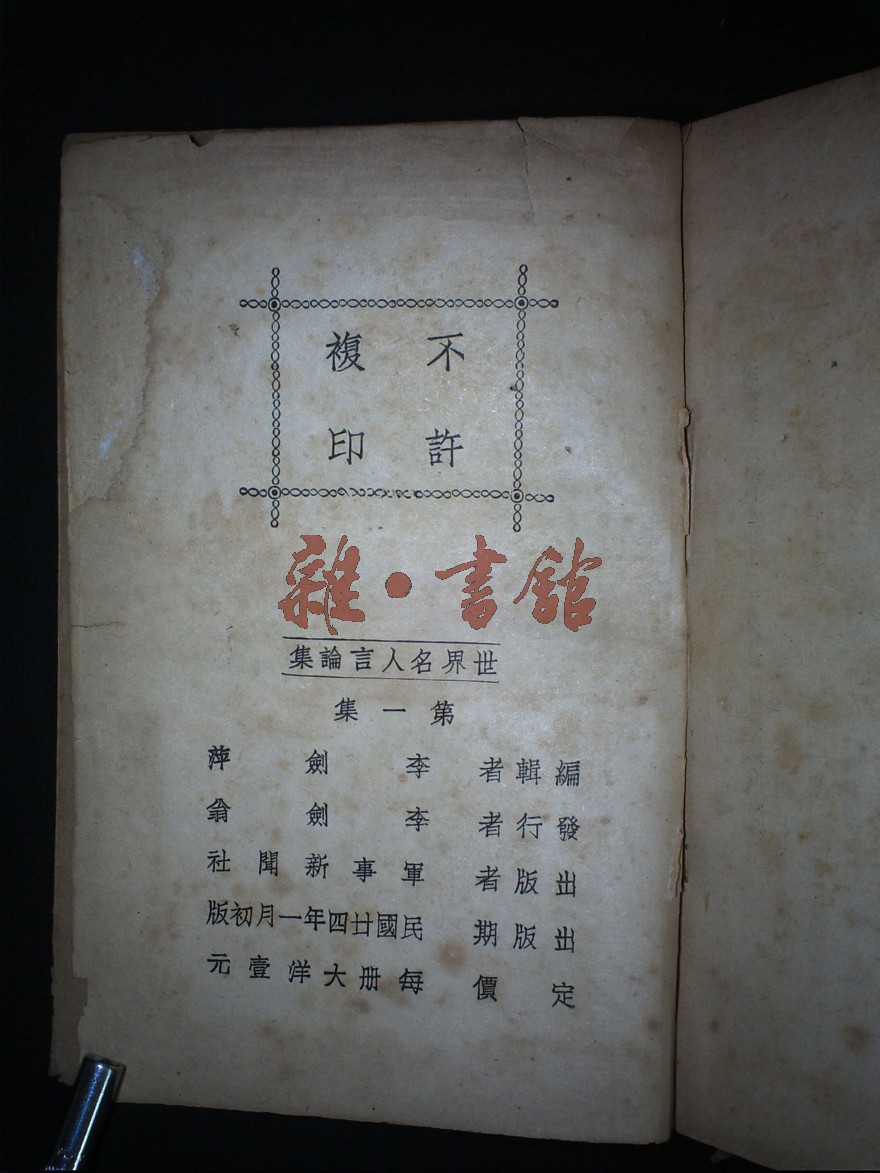 不許
複印
雜·書舘
世界名人言論集
第一集
編輯者 李劍萍
發行者 李劍翁
出版者 軍事新聞社
出版期 民國廿四年一月初版
定價 每册大洋壹元